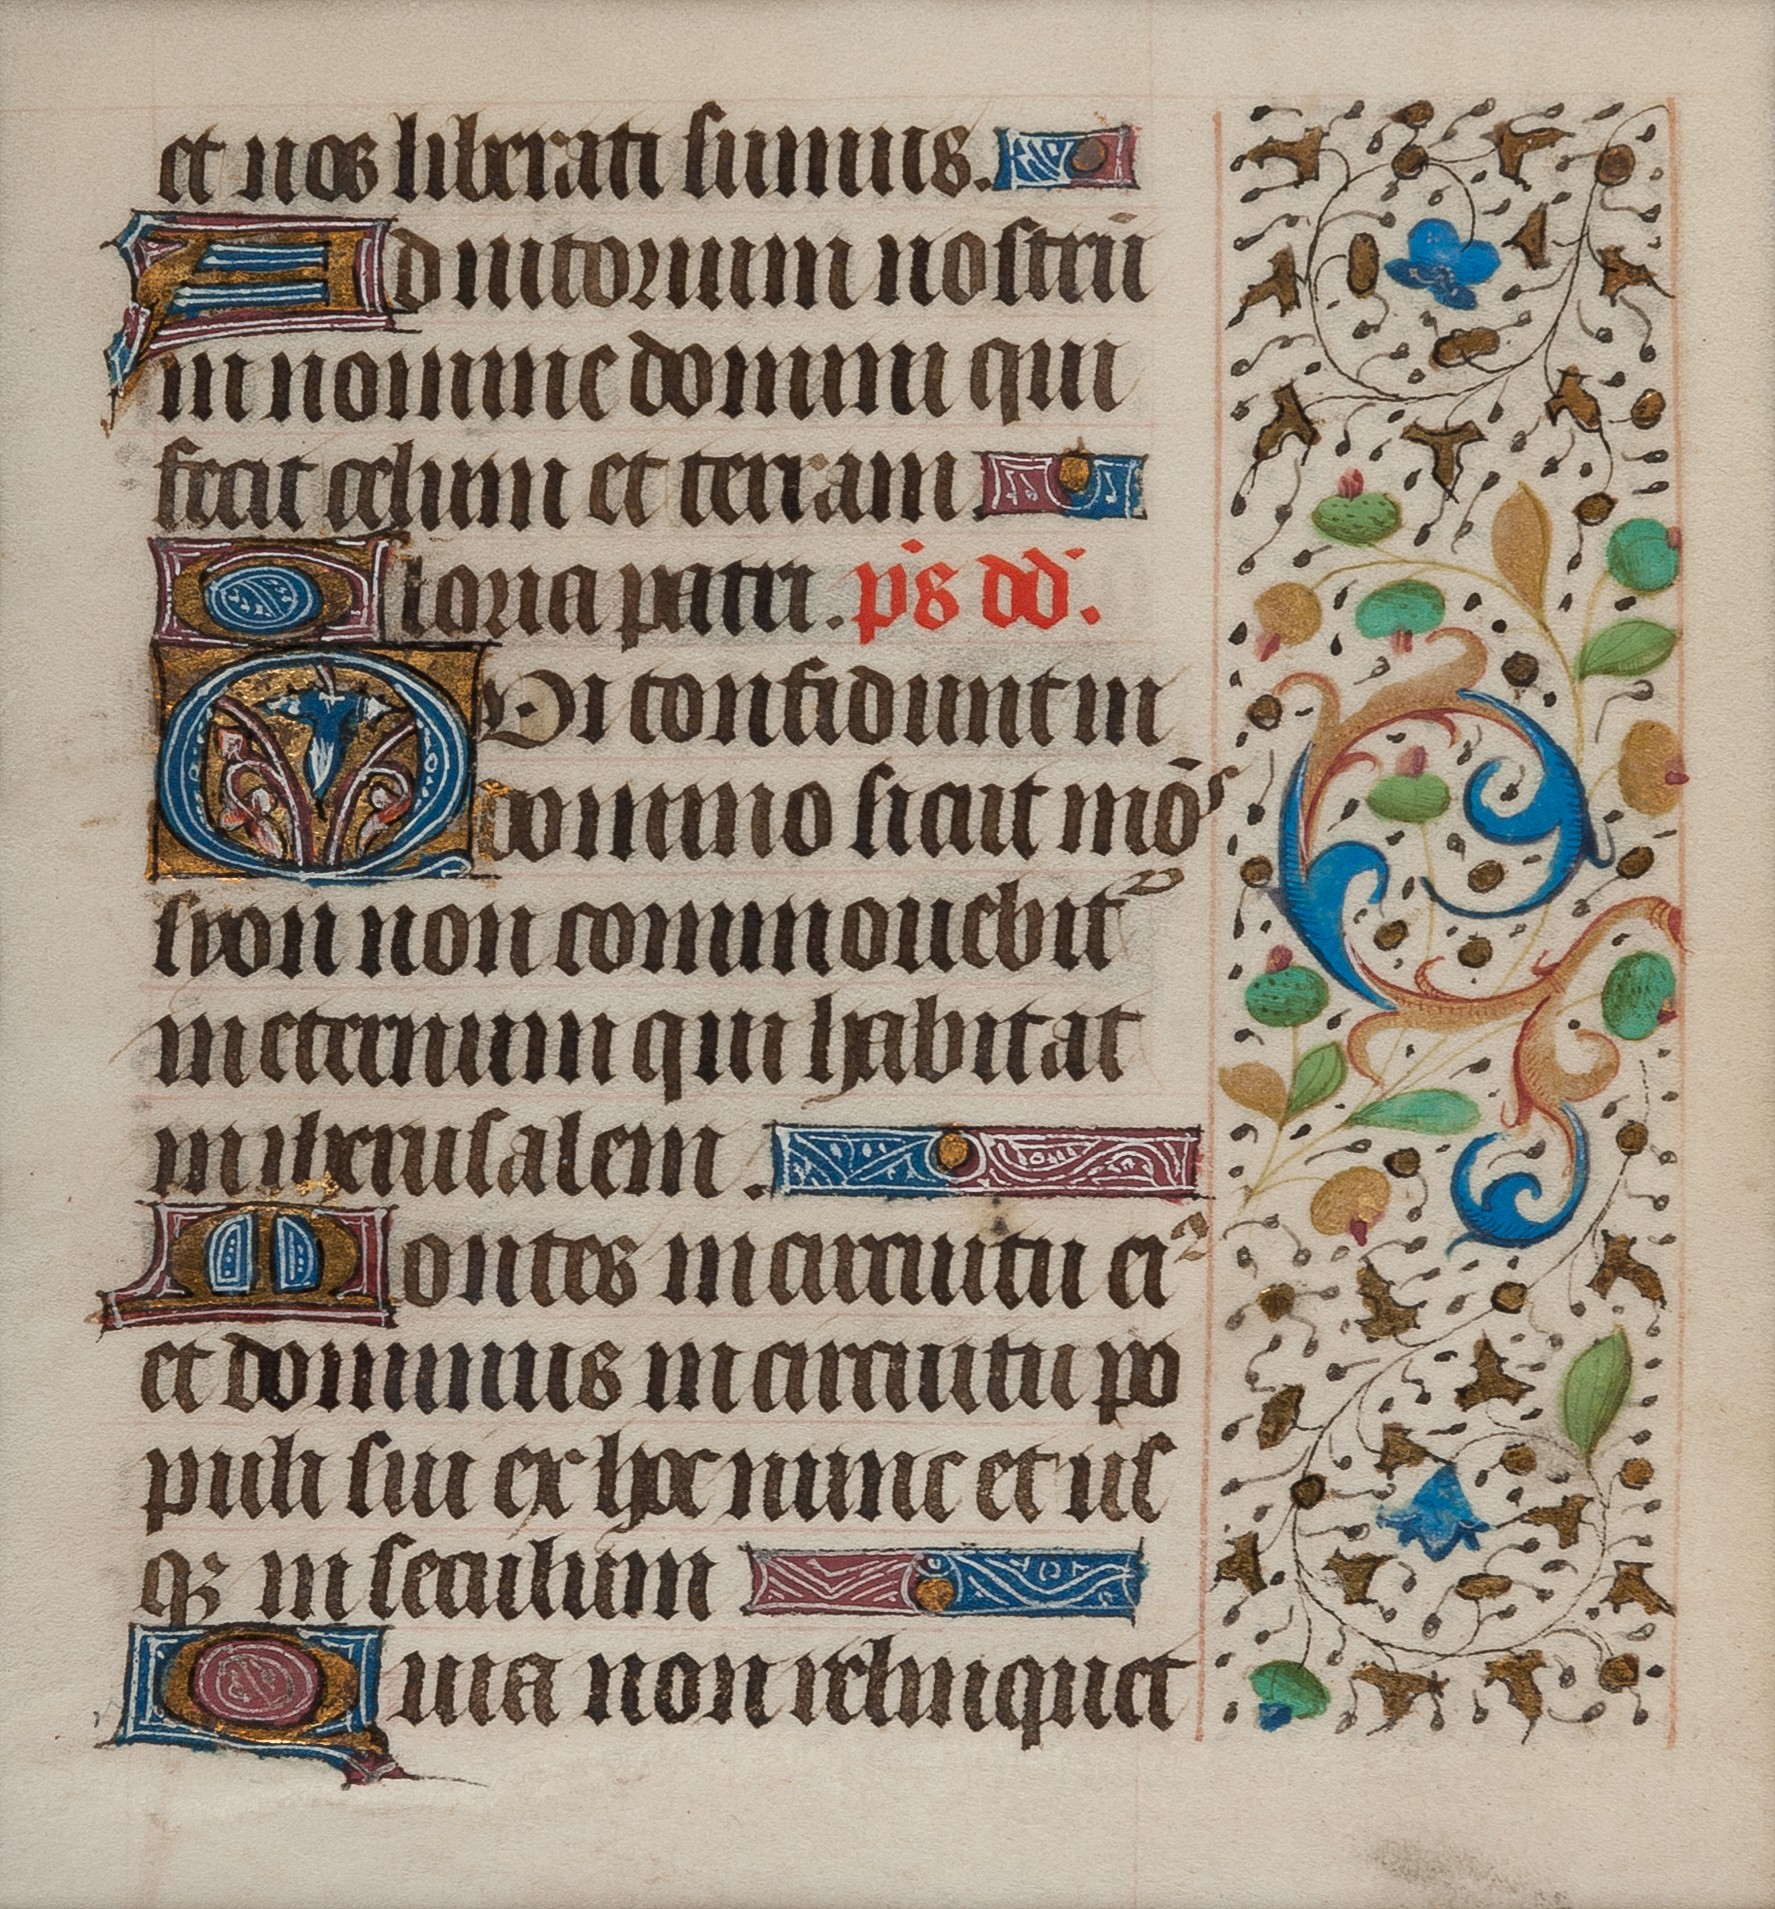 et nos liberati sumus.
Adiutorium nostrū
in nomine domini qui
fecit celum et terram.
Gloria patri. p̄s dd̄.
Qui confidunt in
domino sicut mōs
syon non commouebit᷑
in eternum qui habitat
in iherusalem.
Montes in circuitu ei᷑
et dominus in circuitu po
puli sui ex hoc nunc et us
qꝫ in seculum
Quia non relinquet